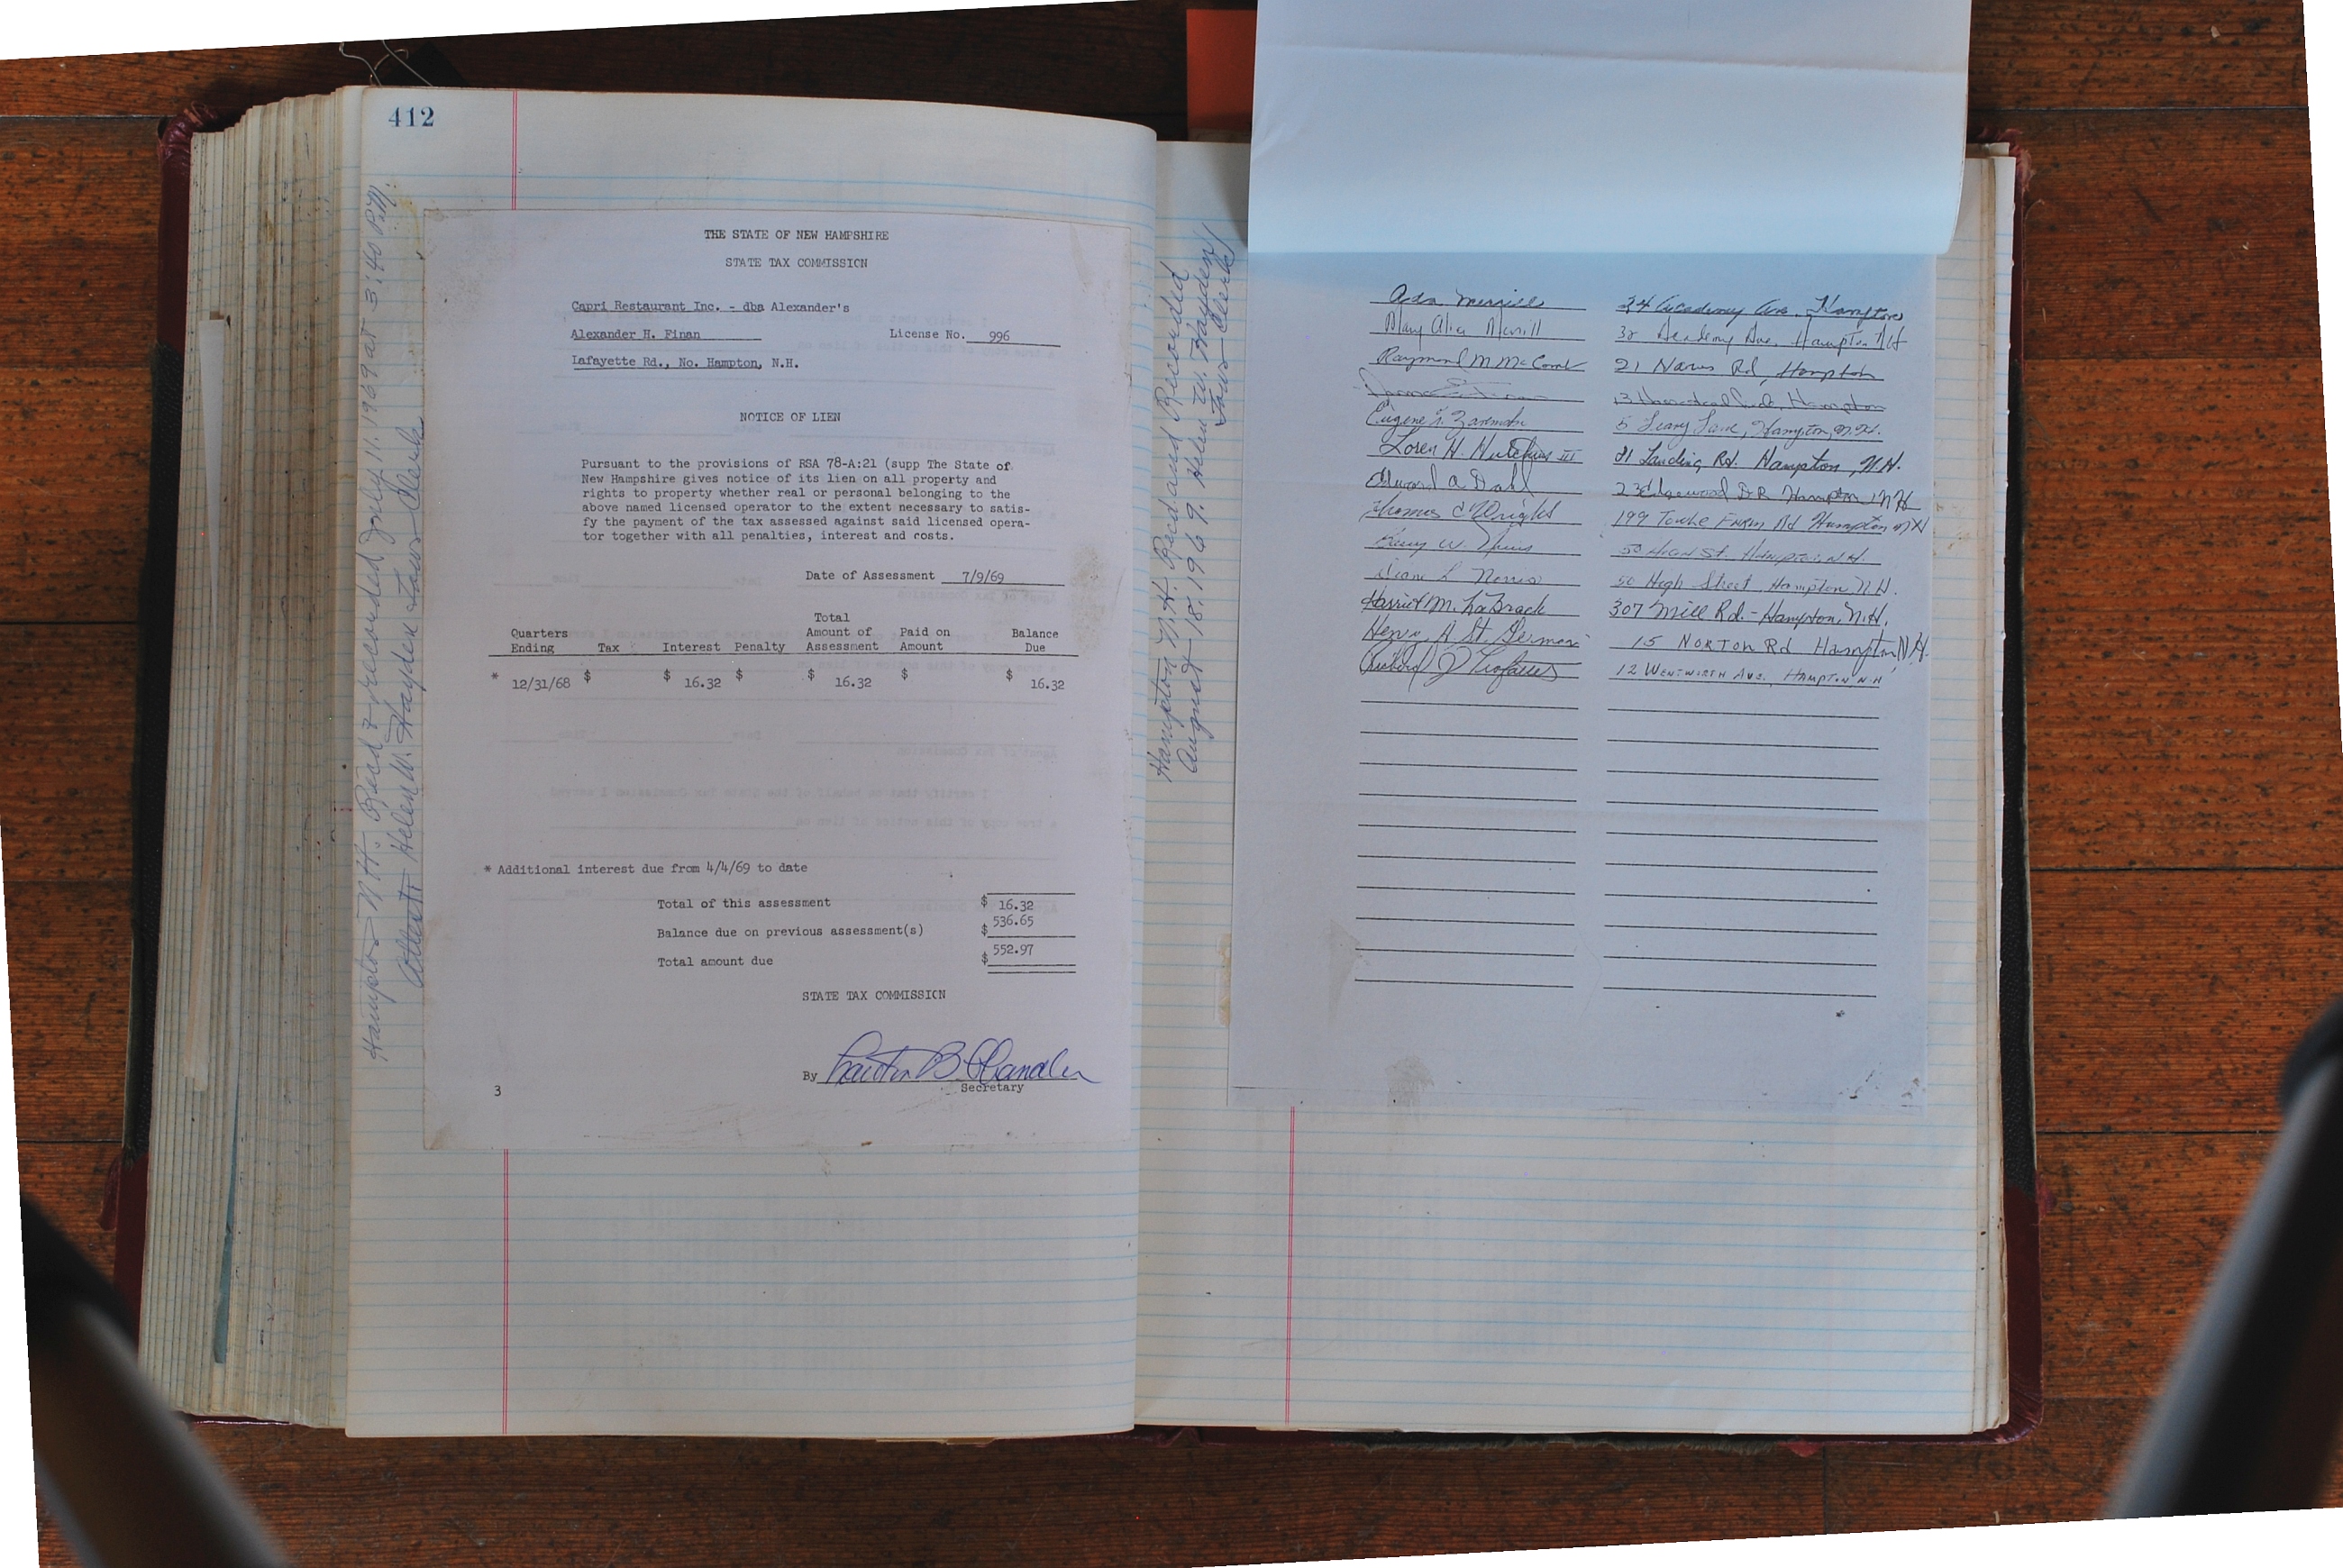 412
Hampton N.H. Rec'd & recorded July 11, 1969 at 3:40 P.M.
Attest: Helen W. Hayden Town Clerk
THE STATE OF NEW HAMPSHIRE
STATE TAX COMMISSION
Capri Restaurant Inc. - dba Alexander's
Alexander H. Finan License No. 996
Lafayette Rd., No. Hampton, N.H.
NOTICE OF LIEN
Pursuant to the provisions of RSA 78-A:21 (supp The State of
New Hampshire gives notice of its lien on all property and
rights to property whether real or personal belonging to the
above named licensed operator to the extent necessary to satis-
fy the payment of the tax assessed against said licensed opera-
tor together with all penalties, interest and costs.
Date of Assessment 7/9/69
Total
Quarters Amount of Paid on Balance
Ending Tax Interest Penalty Assessment Amount Due
* 12/31/68 $ $ 16.32 $ $ 16.32 $ $ 16.32
* Additional interest due from 4/4/69 to date
Total of this assessment $ 16.32
Balance due on previous assessment(s) $ 536.65
Total amount due $ 552.97
STATE TAX COMMISSION
By Lawton B Chandler
Secretary
3
Hampton N.H. Rec'd and Recorded
August 18, 1969. Helen W. Hayden
Town Clerk
Ada Merrill 34 Academy Ave. Hampton
Mary Alice Merrill 32 Academy Ave. Hampton NH
Raymond M McCord 21 Rd, Hampton
13 Hampton
Eugene 5 Leary Lane, Hampton, N.H.
Loren H. Hutchins III 21 Landing Rd. Hampton, N.H.
Edward A Dahl 23 Edgewood DR Hampton, NH
Thomas C Wright 199 Towle Farm Rd Hampton NH
W. Norris 50 High St. Hampton, N.H.
Diane L Norris 50 High Street Hampton N.H.
Harriet M. LaBrack 307 Mill Rd.- Hampton, N.H.
Henry A St. Germain 15 Norton Rd Hampton, N.H.
Richard J 12 Wentworth Ave., Hampton N.H